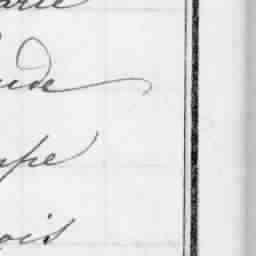 arie
ude
upe
ois